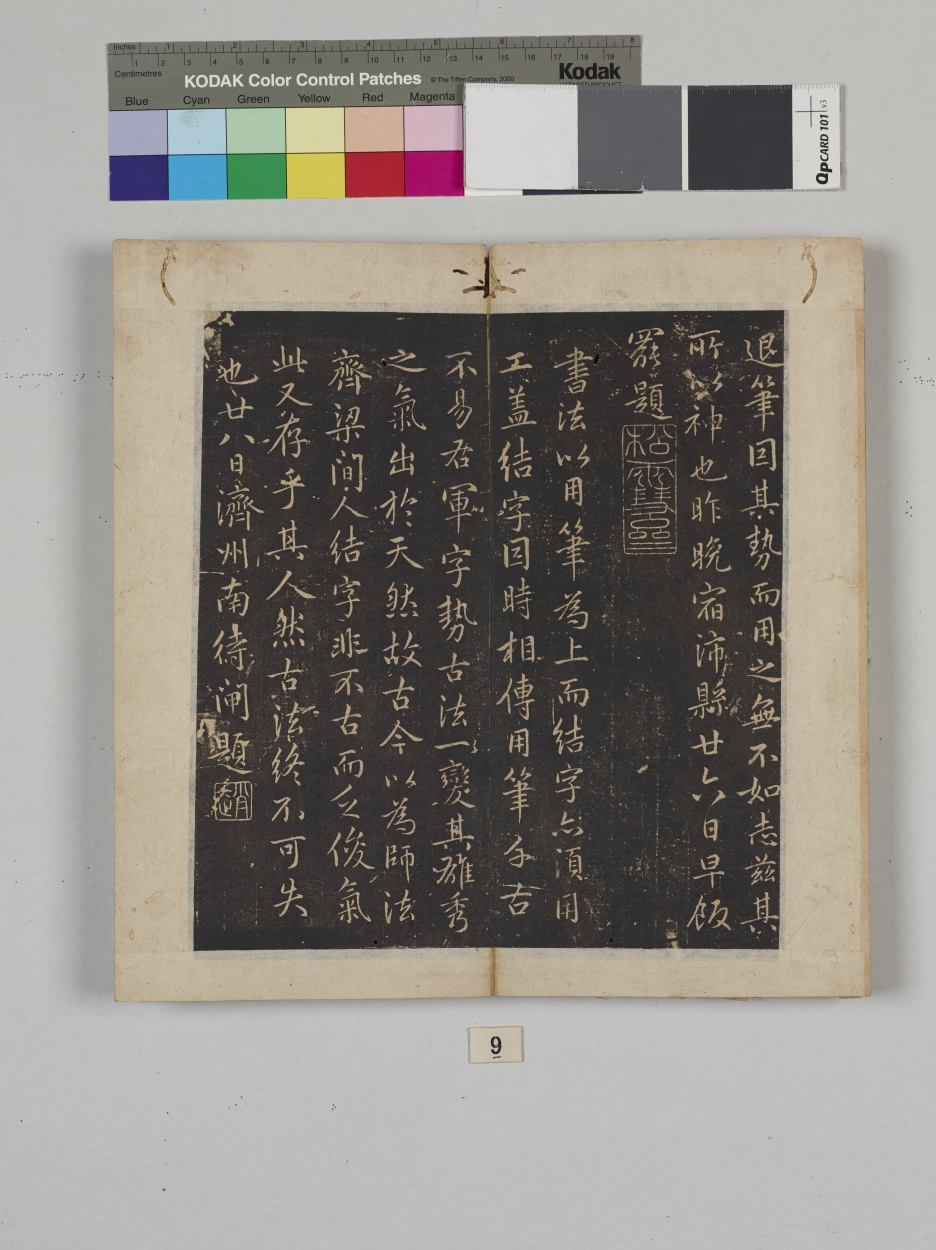 Inches 1 2 3 4 5 6 7 8
Centimetres 1 2 3 4 5 6 7 8 9 10 11 12 13 14 15 16 17 18 19
KODAK Color Control Patches © The Tiffen Company, 2000 Kodak
LICENSED PRODUCT
Blue Cyan Green Yellow Red Magenta
QPCARD 101 v3
退筆因其勢而用之無不如志茲其
所以神也昨晚宿沛縣廿六日早飯
罷題 松雪齋
書法以用筆為上而結字亦須用
工盖結字因時相傳用筆千古
不易右軍字勢古法一變其雄秀
之氣出於天然故古今以為師法
齊梁間人結字非不古而乏俊氣
此又存乎其人然古法終不可失
也廿八日濟州南待閘題
9